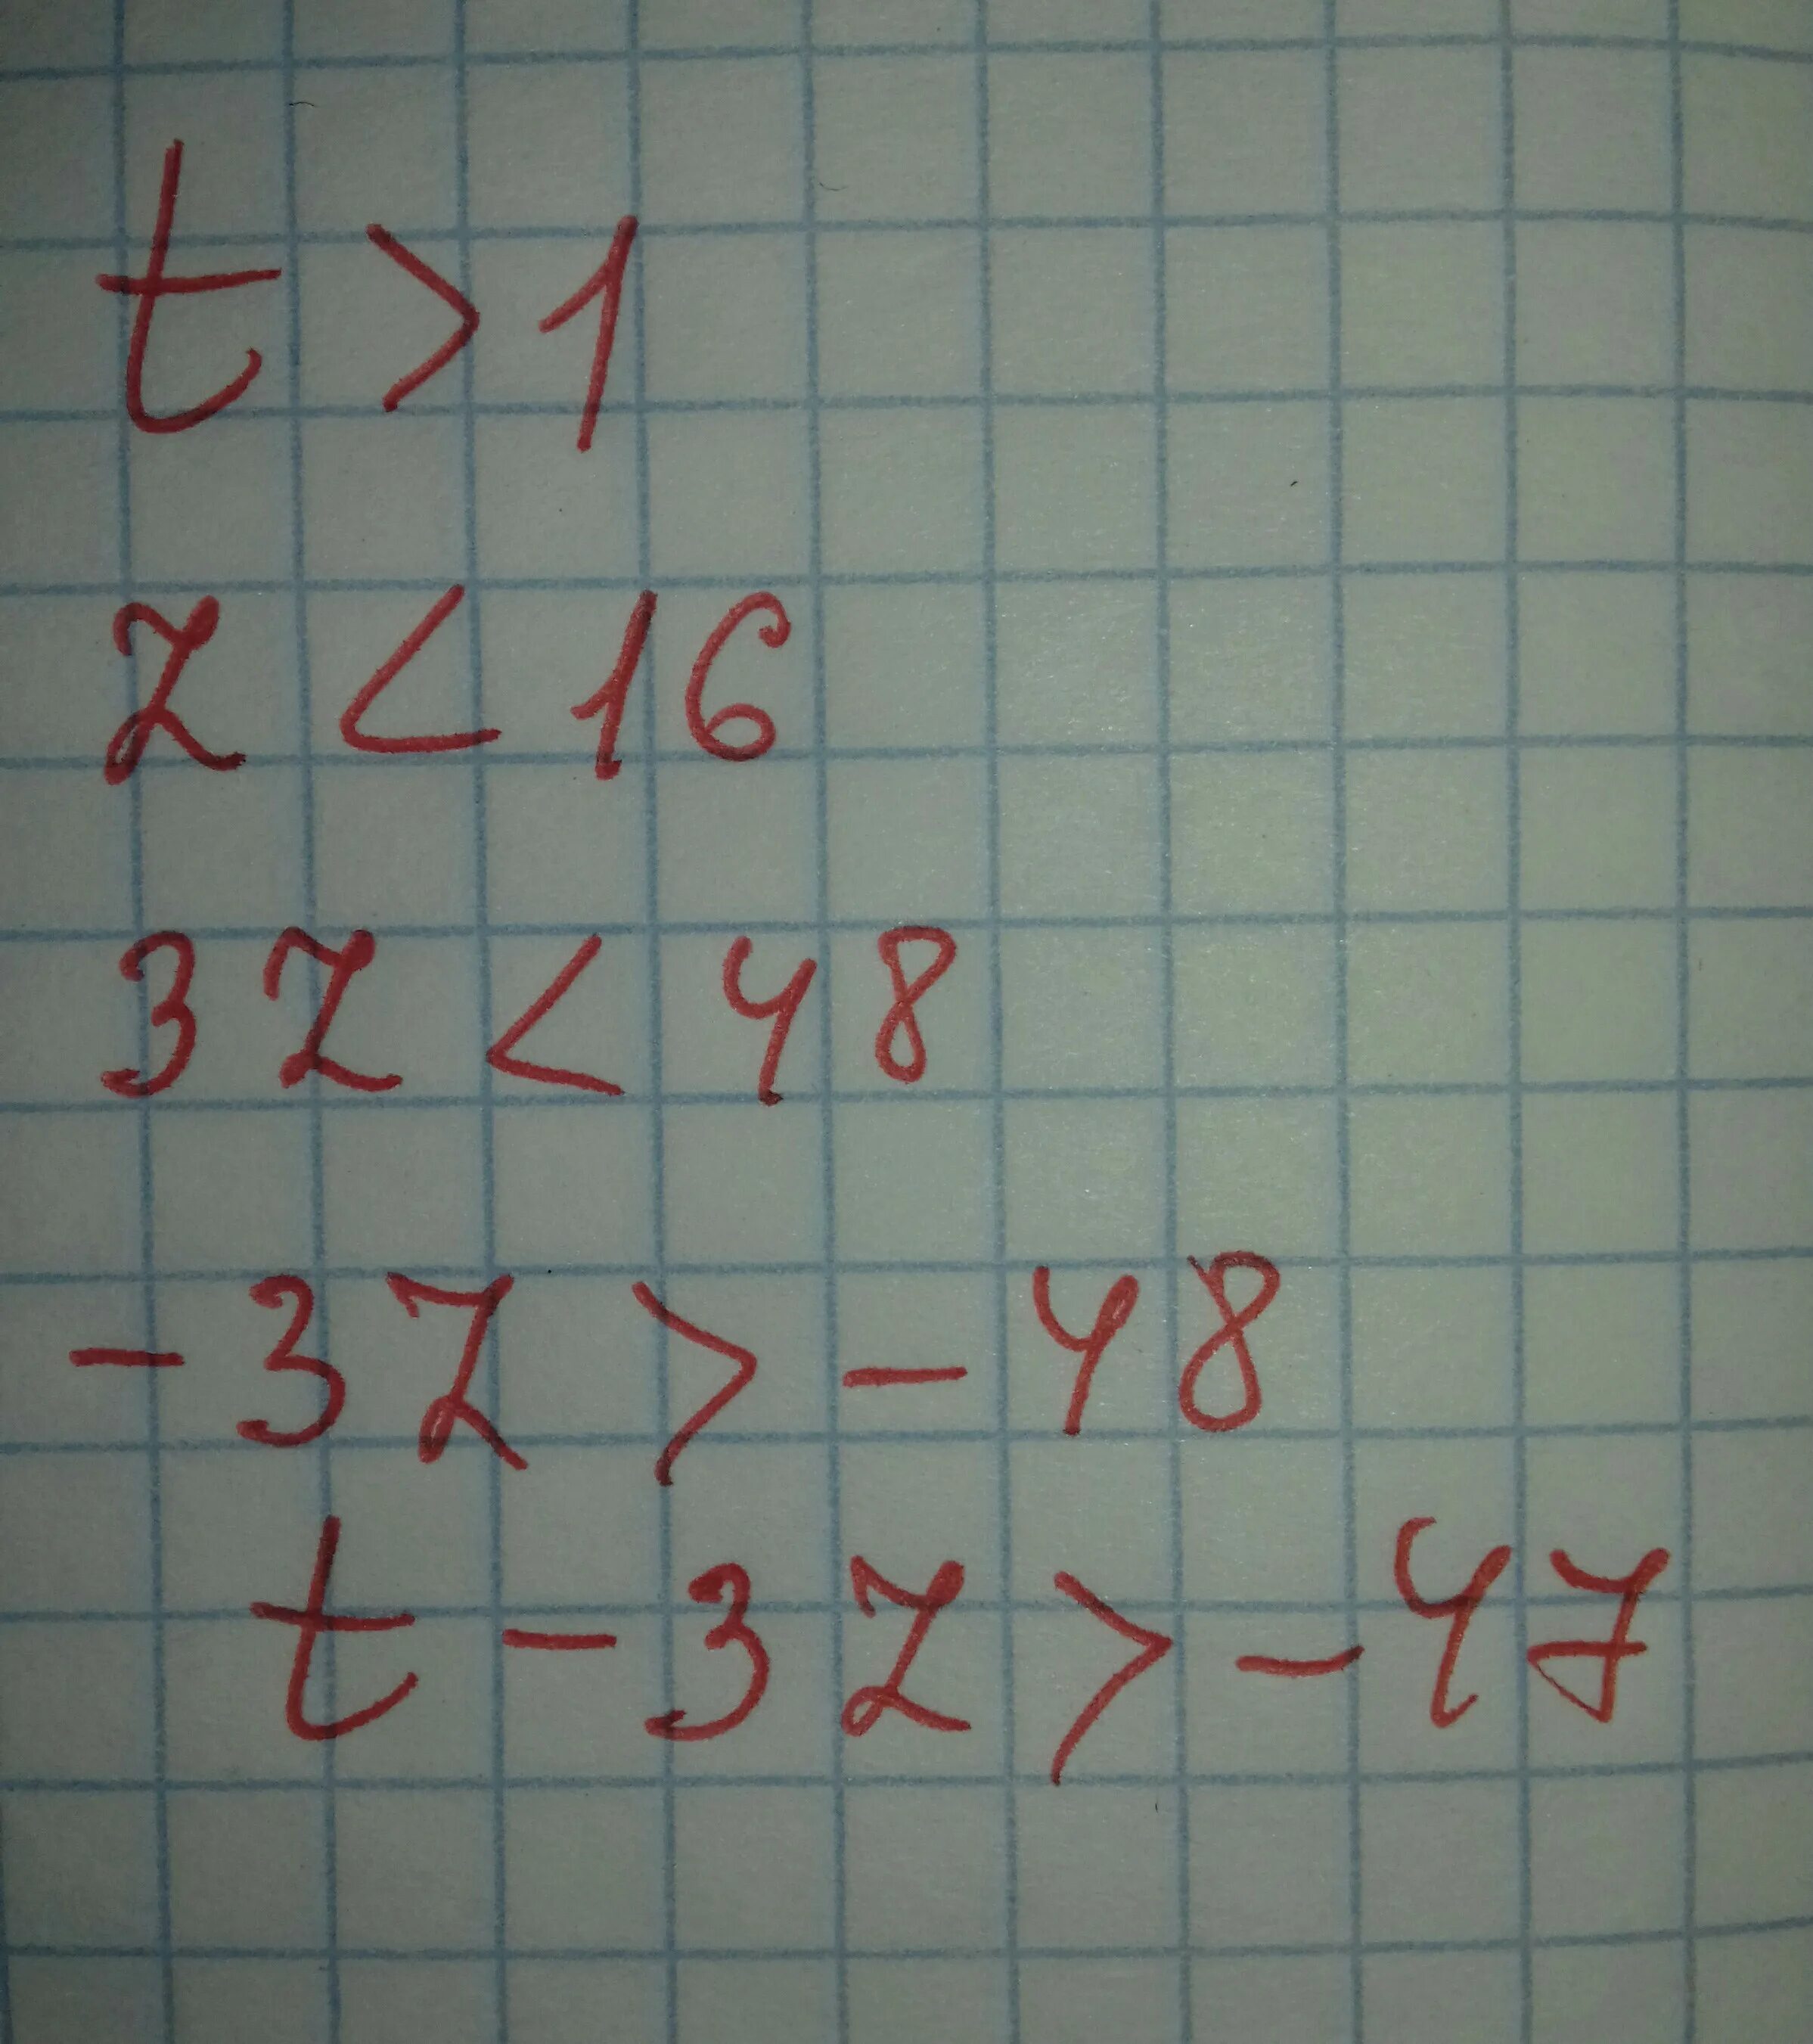 t > 1
z < 16
3z < 48
-3z > -48
t - 3z > -47